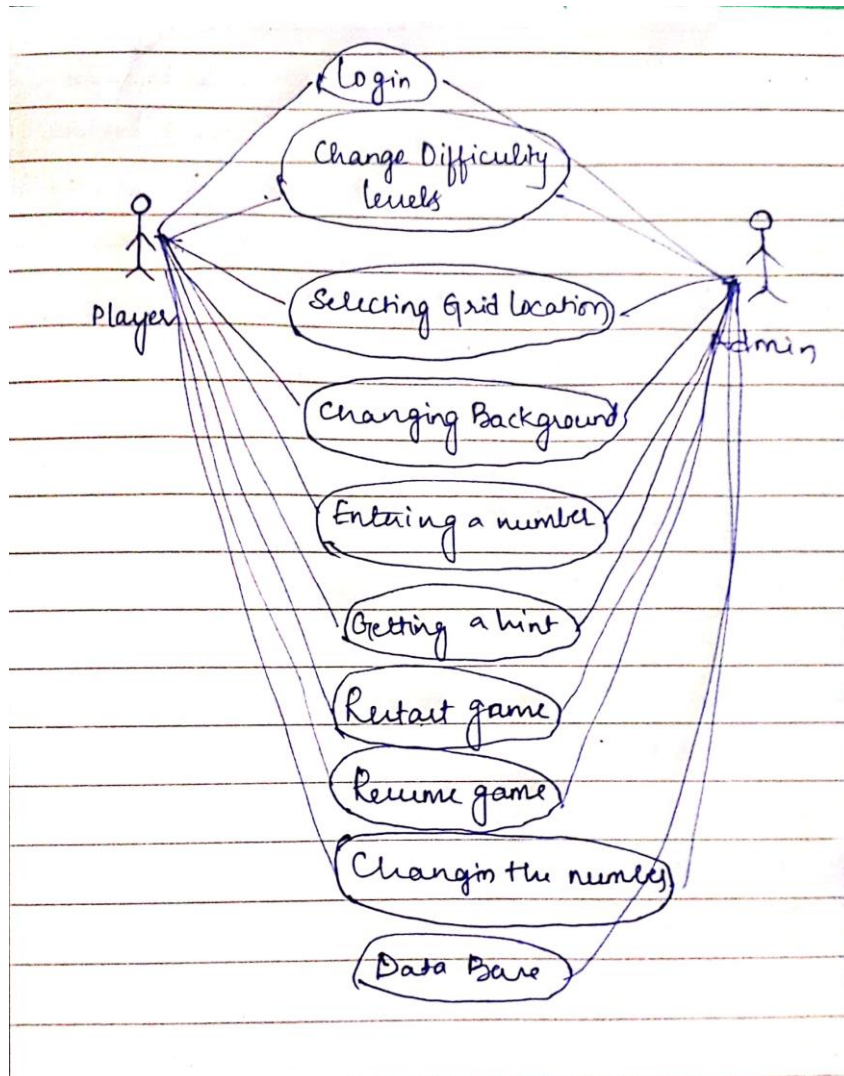 Login
Change Difficulity
levels
Player
Selecting Grid Location
Admin
Changing Background
Entering a number
Getting a hint
Restart game
Resume game
Changin the number
Data Base